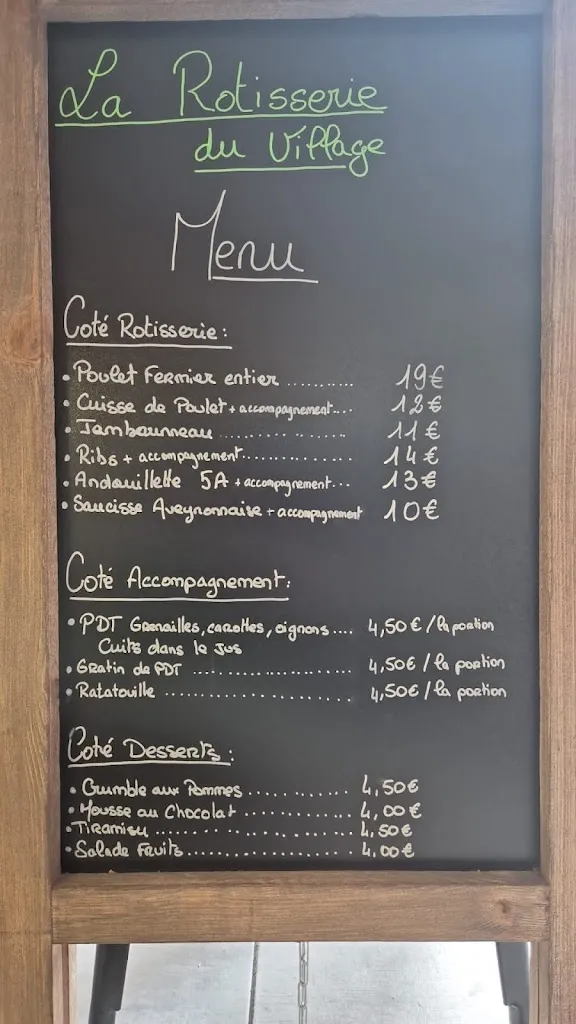 La Rotisserie
du Village
Menu
Coté Rotisserie:
• Poulet Fermier entier ........... 19€
• Cuisse de Poulet + accompagnement.... 12€
• Jambonneau .................. 11€
• Ribs + accompagnement............... 14€
• Andouillette 5A + accompagnement... 13€
• Saucisse Aveyronnaise + accompagnement 10€
Coté Accompagnement:
• PDT Grenailles, carottes, oignons.... 4,50€/la portion
Cuits dans le jus
• Gratin de PDT ...................... 4,50€/la portion
• Ratatouille .......................... 4,50€/la portion
Coté Desserts:
• Crumble aux Pommes............. 4,50€
• Mousse au Chocolat ............. 4,00€
• Tiramisu ......................... 4,50€
• Salade Fruits..................... 4,00€